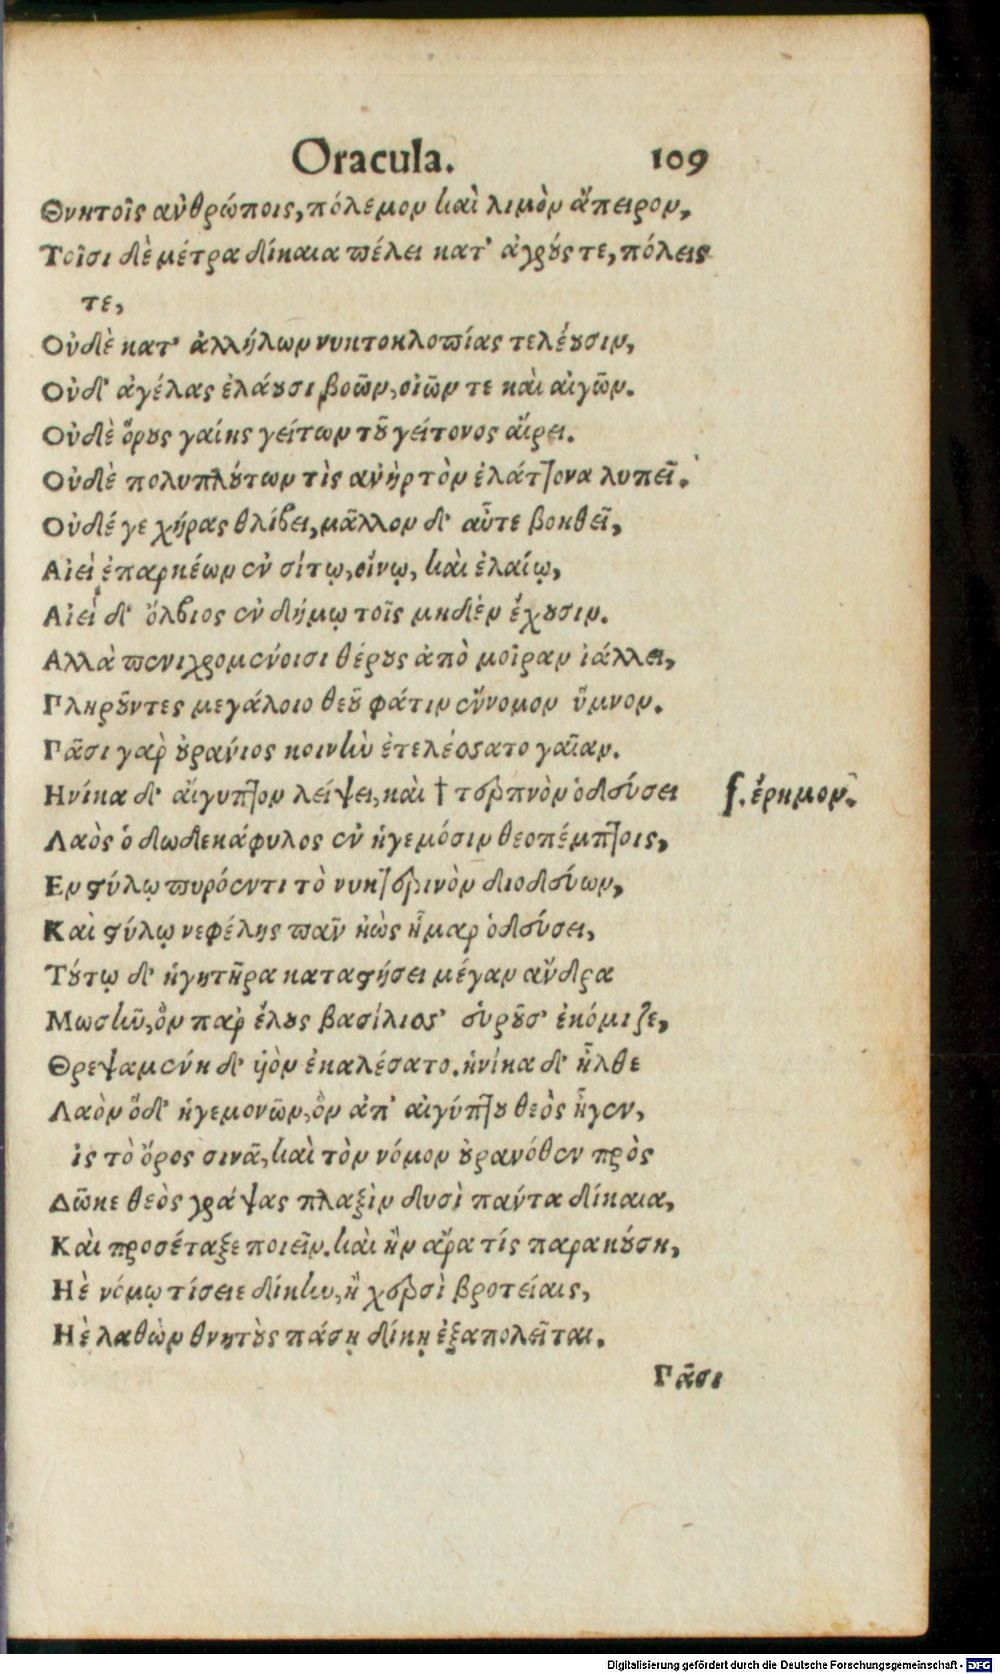 Oracula. 109
Θνητοῖς ἀνθρώποις, πόλεμον καὶ λιμὸν ἄπειρον,
Τοῖσι δὲ μέτρα δίκαια πέλει κατ' ἀγρούς τε, πόλεις
τε,
Οὐδὲ κατ' ἀλλήλων νυκτοκλοπίας τελέουσιν,
Οὐδ' ἀγέλας ἐλάουσι βοῶν, οἰῶν τε καὶ αἰγῶν.
Οὐδὲ ὅρους γαίης γείτων τοῦ γείτονος αἴρει.
Οὐδὲ πολυπλούτων τὶς ἀνὴρ τὸν ἐλάττονα λυπεῖ.
Οὐδέ γε χήρας θλίβει, μᾶλλον δ' αὖτε βοηθεῖ,
Αἰεὶ ἐπαρκέων ἐν σίτῳ, οἴνῳ, καὶ ἐλαίῳ,
Αἰεὶ δ' ὄλβιος ἐν δήμῳ τοῖς μηδὲν ἔχουσιν.
Αλλὰ πενιχρομένοισι θέρους ἀπὸ μοῖραν ἰάλλει,
Πληροῦντες μεγάλοιο θεοῦ φάτιν ἔννομον ὕμνον.
Πᾶσι γὰρ οὐράνιος κοινὴν ἐτελέσσατο γαῖαν.
Ηνίκα δ' αἴγυπτον λείψει, καὶ † τερπνὸν ὁδεύσει ſ. ἔρημον.
Λαὸς ὁ δωδεκάφυλος ἐν ἡγεμόσιν θεοπέμπτοις,
Εν στύλῳ πυρόεντι τὸ νυκτερινὸν διοδεύων,
Καὶ στύλῳ νεφέλης πᾶν ἠὼς ἦμαρ ὁδεύσει,
Τούτῳ δ' ἡγητῆρα καταστήσει μέγαν ἄνδρα
Μωσῆν, ὃν παρ ἕλους βασίλιος' εὑροῦς' ἐκόμιζε,
Θρεψαμένη δ' ὑὸν ἐκαλέσατο. ἡνίκα δ' ἦλθε
Λαὸν ὅδ' ἡγεμονῶν, ὃν ἀπ' αἰγύπτου θεὸς ἦγεν,
ἰς τὸ ὄρος σινᾶ, καὶ τὸν νόμον οὐρανόθεν πρὸς
Δῶκε θεὸς γράψας πλαξὶν δυσὶ πάντα δίκαια,
Καὶ προσέταξε ποιεῖν. καὶ ἢν ἄρα τίς παρακούσῃ,
Ηὲ νόμῳ τίσειε δίκην, ἢ χερσὶ βροτείαις,
Ηὲ λαθὼν θνητοὺς πάσῃ δίκῃ ἐξαπολεῖται.
Πᾶσι
Digitalisierung gefördert durch die Deutsche Forschungsgemeinschaft - DFG